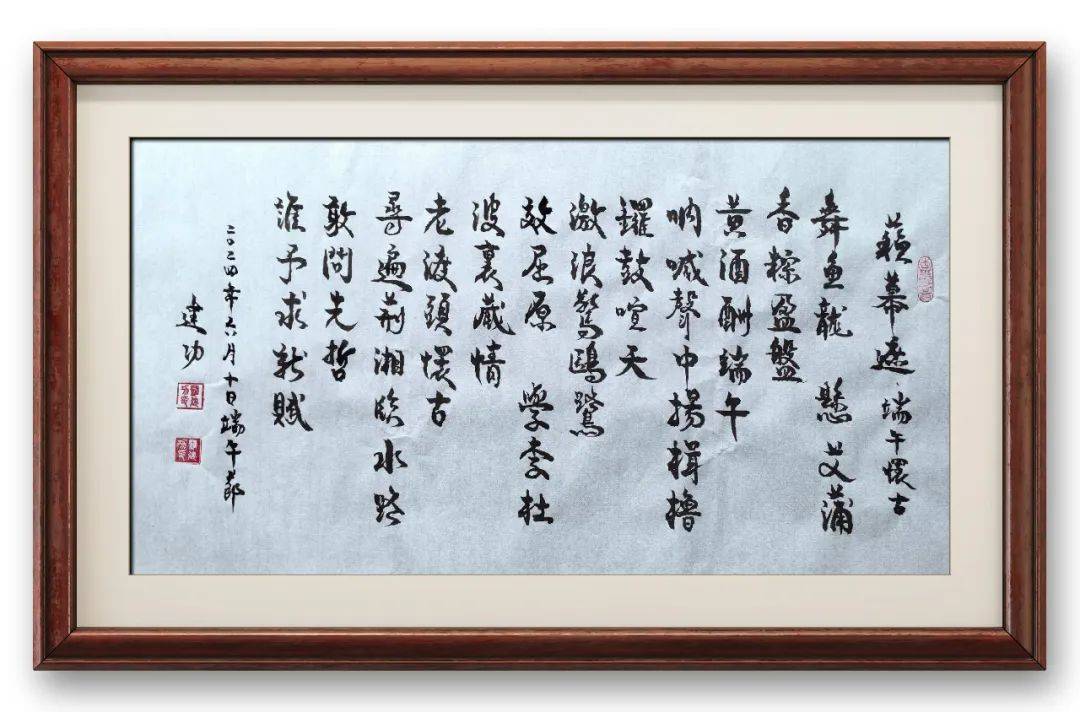 蘇幕遮、端午懷古
舞魚龍 懸艾蒲
香粽盈盤
黃酒酬端午
吶喊聲中揚楫擼
鑼鼓喧天
激浪驚鷗鷺
效屈原 學李杜
波裏藏情
老渡頭懷古
尋遍荊湘臨水路
敢問先哲
誰予求新賦
二〇二四年六月十日端午節
建功